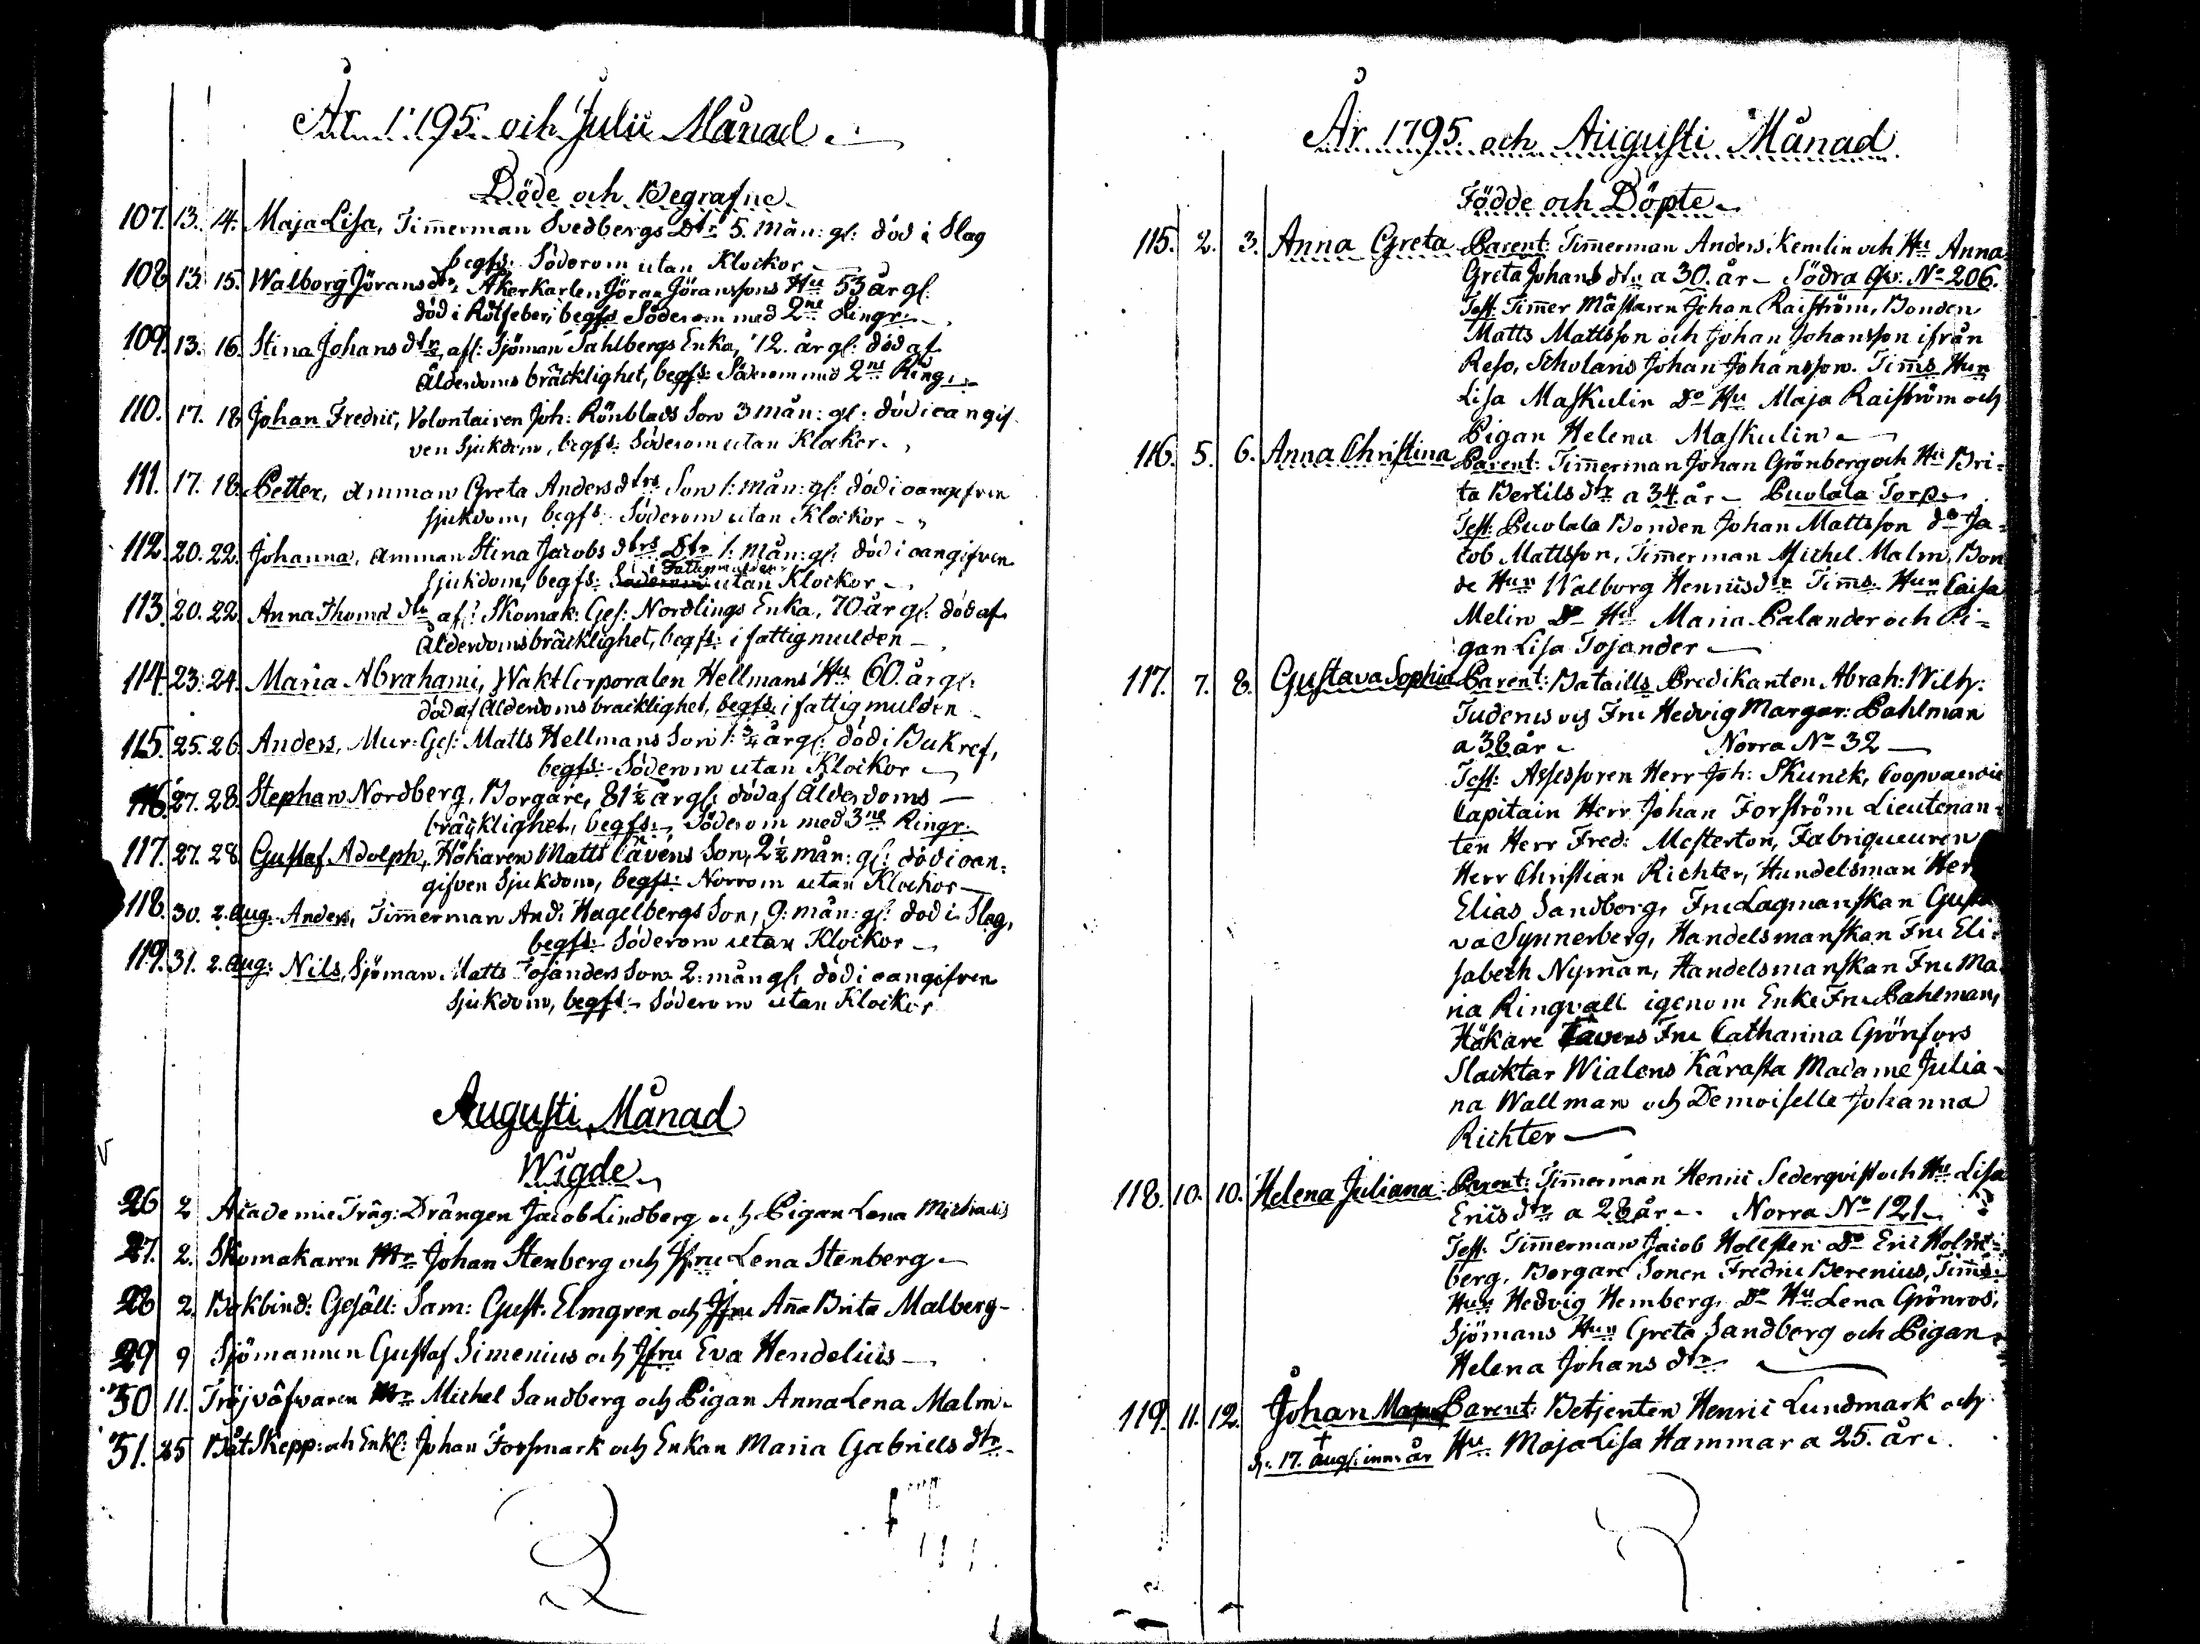 År 1795 och Julii Månad.
Döde och Begrafne
107. 13. 14. Maja Lisa, Timmerman Svedbergs Dtr 5. Mån: gl: död i Slag
begfs: Söderom utan Klockor
108 13. 15. Walborg Jörans dtr Åkerkarlen Jöran Jöranssons Hu 53 år gl:
död i Rötfeber, begfs Söderom med 2ne Ringr:
109. 13. 16. Stina Johans dtr, afl: Sjöman Sahlbergs Enka, 72. år gl: död af
Ålderdoms bräcklighet, begfs: Söderom med 2ne Ring:
110. 17. 18 Johan Fredric, Volontairen Joh: Rönblads Son 3 mån: gl: död i oangif
ven Sjukdom, begfs: Söderom utan Klockor.
111. 17. 18. Petter, Amman Greta Anders dtrs Son 1: mån: gl: död i oangifven
sjukdom, begfs: Söderom utan Klockor
112. 20. 22. Johanna, Amman Stina Jacobs dtrs Dtr 1: Mån: gl: död i oangifven
i Fattigmulden
sjukdom, begfs: Söderom utan Klockor
113. 20. 22. Anna Thomæ dtr afl: Skomak: Ges: Nordlings Enka, 70 år gl: död af
Ålderdomsbräcklighet, begfs: i fattigmulden
114. 23. 24. Maria Abrahami, Wakt Corporalen Hellmans Hu 60. år gl:
död af Ålderdoms bräcklighet, begfs: i fattigmulden
115. 25. 26. Anders, Mur: Ges: Matts Hellmans Son 1: 3/4 år gl: död i Bukref,
begfs: Söderom utan Klockor
116. 27. 28. Stephan Nordberg, Borgare, 81 1/2 år gl: död af Ålderdoms
bräcklighet, begfs: Söderom med 3ne Ringr:
117. 27. 28. Gustaf Adolph, Hökaren Matts Cavéns Son, 2 1/2 mån: gl: död i oan:
gifven Sjukdom, begfs: Norrom utan Klockor
118. 30. 2. Aug. Anders, Timmerman And: Hagelbergs Son, 9: mån: gl: död i Slag,
begfs: Söderom utan Klockor
119. 31. 2. Aug: Nils, Sjöman Matts Tojanders Son 2: mån gl: död i oangifven
sjukdom, begfs: Söderom utan Klockor
Augusti Månad
Wigde
26 2 Academie Träg: Drängen Jacob Lindberg och Pigan Lena Michaelis
27. 2. Skomakaren Mr Johan Stenberg och Jfru Lena Stenberg
28 2. Bokbind: Gesäll: Sam: Gust: Elmgren och Jfru Anna Brita Malberg
29 9 Sjömannen Gustaf Simenius och Jfru Eva Hendelius
30 11. Tröjväfvaren Mr Michel Sandberg och Pigan Anna Lena Malm
31. 25 Båt Skepp: och Enkl: Johan Forsmark och Enkan Maria Gabriels dtr
År 1795. och Augusti Månad
Födde och Döpte
115. 2. 3. Anna Greta Parent: Timmerman Anders Kemlin och Hu Anna
Greta Johans dtr a 30. år - Södra Qv. No 206.
Test: Timmer Mästaren Johan Raiström, Bonden
Matts Mattsson och Johan Johansson ifrån
Reso, Scholaris Johan Johansson. Timms Hun
Lisa Maskulin Do Hu Maja Raiström och
Pigan Helena Maskulin
116. 5. 6. Anna Christina Parent: Timmerman Johan Grönberg och Hu Bri=
ta Bertils dtr a 34 år - Puolala Torp
Test: Puolala Bonden Johan Mattsson do Ja=
cob Mattsson, Timmerman Michel Malm, Bon
de Hun Walborg Henricsdtr Timms. Hun Caisa
Melin Do Hu Maria Palander och Pi=
gan Lisa Tojander
117. 7. 8. Gustava Sophia Parent: Bataills Predikanten Abrah: Wilh:
Tudenis och Fru Hedvig Margar: Pahlman
a 38 år Norra No 32
Test: Assessoren Herr Joh: Skunck, Coopvaerdie
Capitain Herr Johan Forström Lieutenan=
ten Herr Fred: Mesterton, Fabriqueuren
Herr Christian Richter, Handelsman Herr
Elias Sandborg, Fru Lagmanskan Gusta
va Synnerberg, Handelsmanskan Fru Eli=
sabeth Nyman, Handelsmanskan Fru Ma
ria Ringvall igenom Enke Fru Pahlman,
Hökare Cavens Fru Catharina Grönfors
Slacktar Wialens Kärasta Madame Julia=
na Wallman och Demoiselle Johanna
Richter
118. 10. 10. Helena Juliana Parent: Timmerman Henric Sederqvist och Hu Lisa
Erics dtr a 28 år - Norra No 121
Test: Timmerman Jacob Hollsten Do Eric Holm=
berg, Borgare Sonen Fredric Berenius, Timms
Hun Hedvig Hemberg, Do Hu Lena Grönros,
Sjömans Hun Greta Sandberg och Pigan
Helena Johans dtr
119. 11. 12. Johan Magnus Parent: Betjenten Henric Lundmark och
d: 17. Aug: inn: år Hu Maja Lisa Hammar a 25. år.